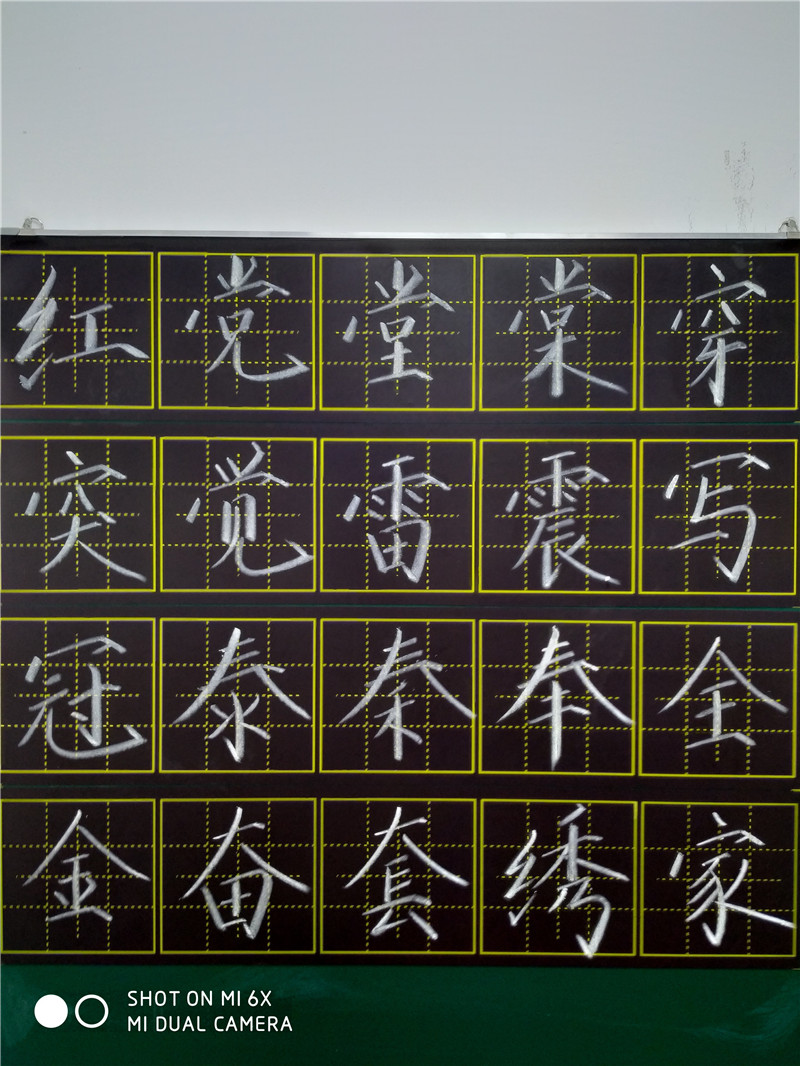 红党堂棠穿
突觉雷震写
冠泰秦奉全
金奋套绣家
SHOT ON MI 6X
MI DUAL CAMERA